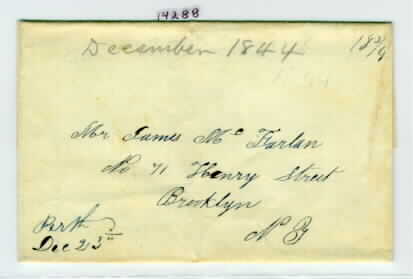 14288
December 1844
Mr James Mc Farlan
No 71 Henry Street
Brooklyn
N Y
Perth
Dec 23